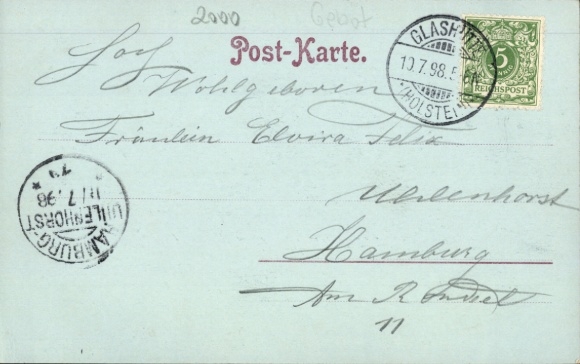 2000 Gebot
Post-Karte.
GLASHÜTTE
10.7.98.5-6N
(HOLSTEIN)
5
REICHSPOST
Hoch
Wohlgeboren
Fräulein Elvira Felix
Uhlenhorst
Hamburg
Am Rondeel
11
HAMBURG
UHLENHORST
11/7.98